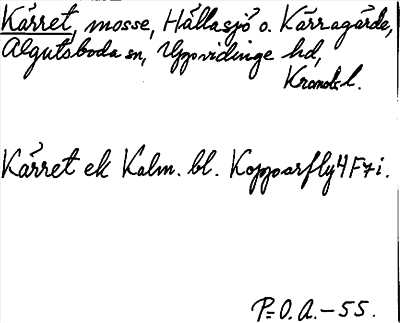 Kärret, mosse, Hållasjö o. Kärragärde,
Älgutsboda sn, Uppvidinge hd,
Kronob. l.
Kärret ek Kalm. bl. Kopparfly 4F7i.
P=O.A. – 55.